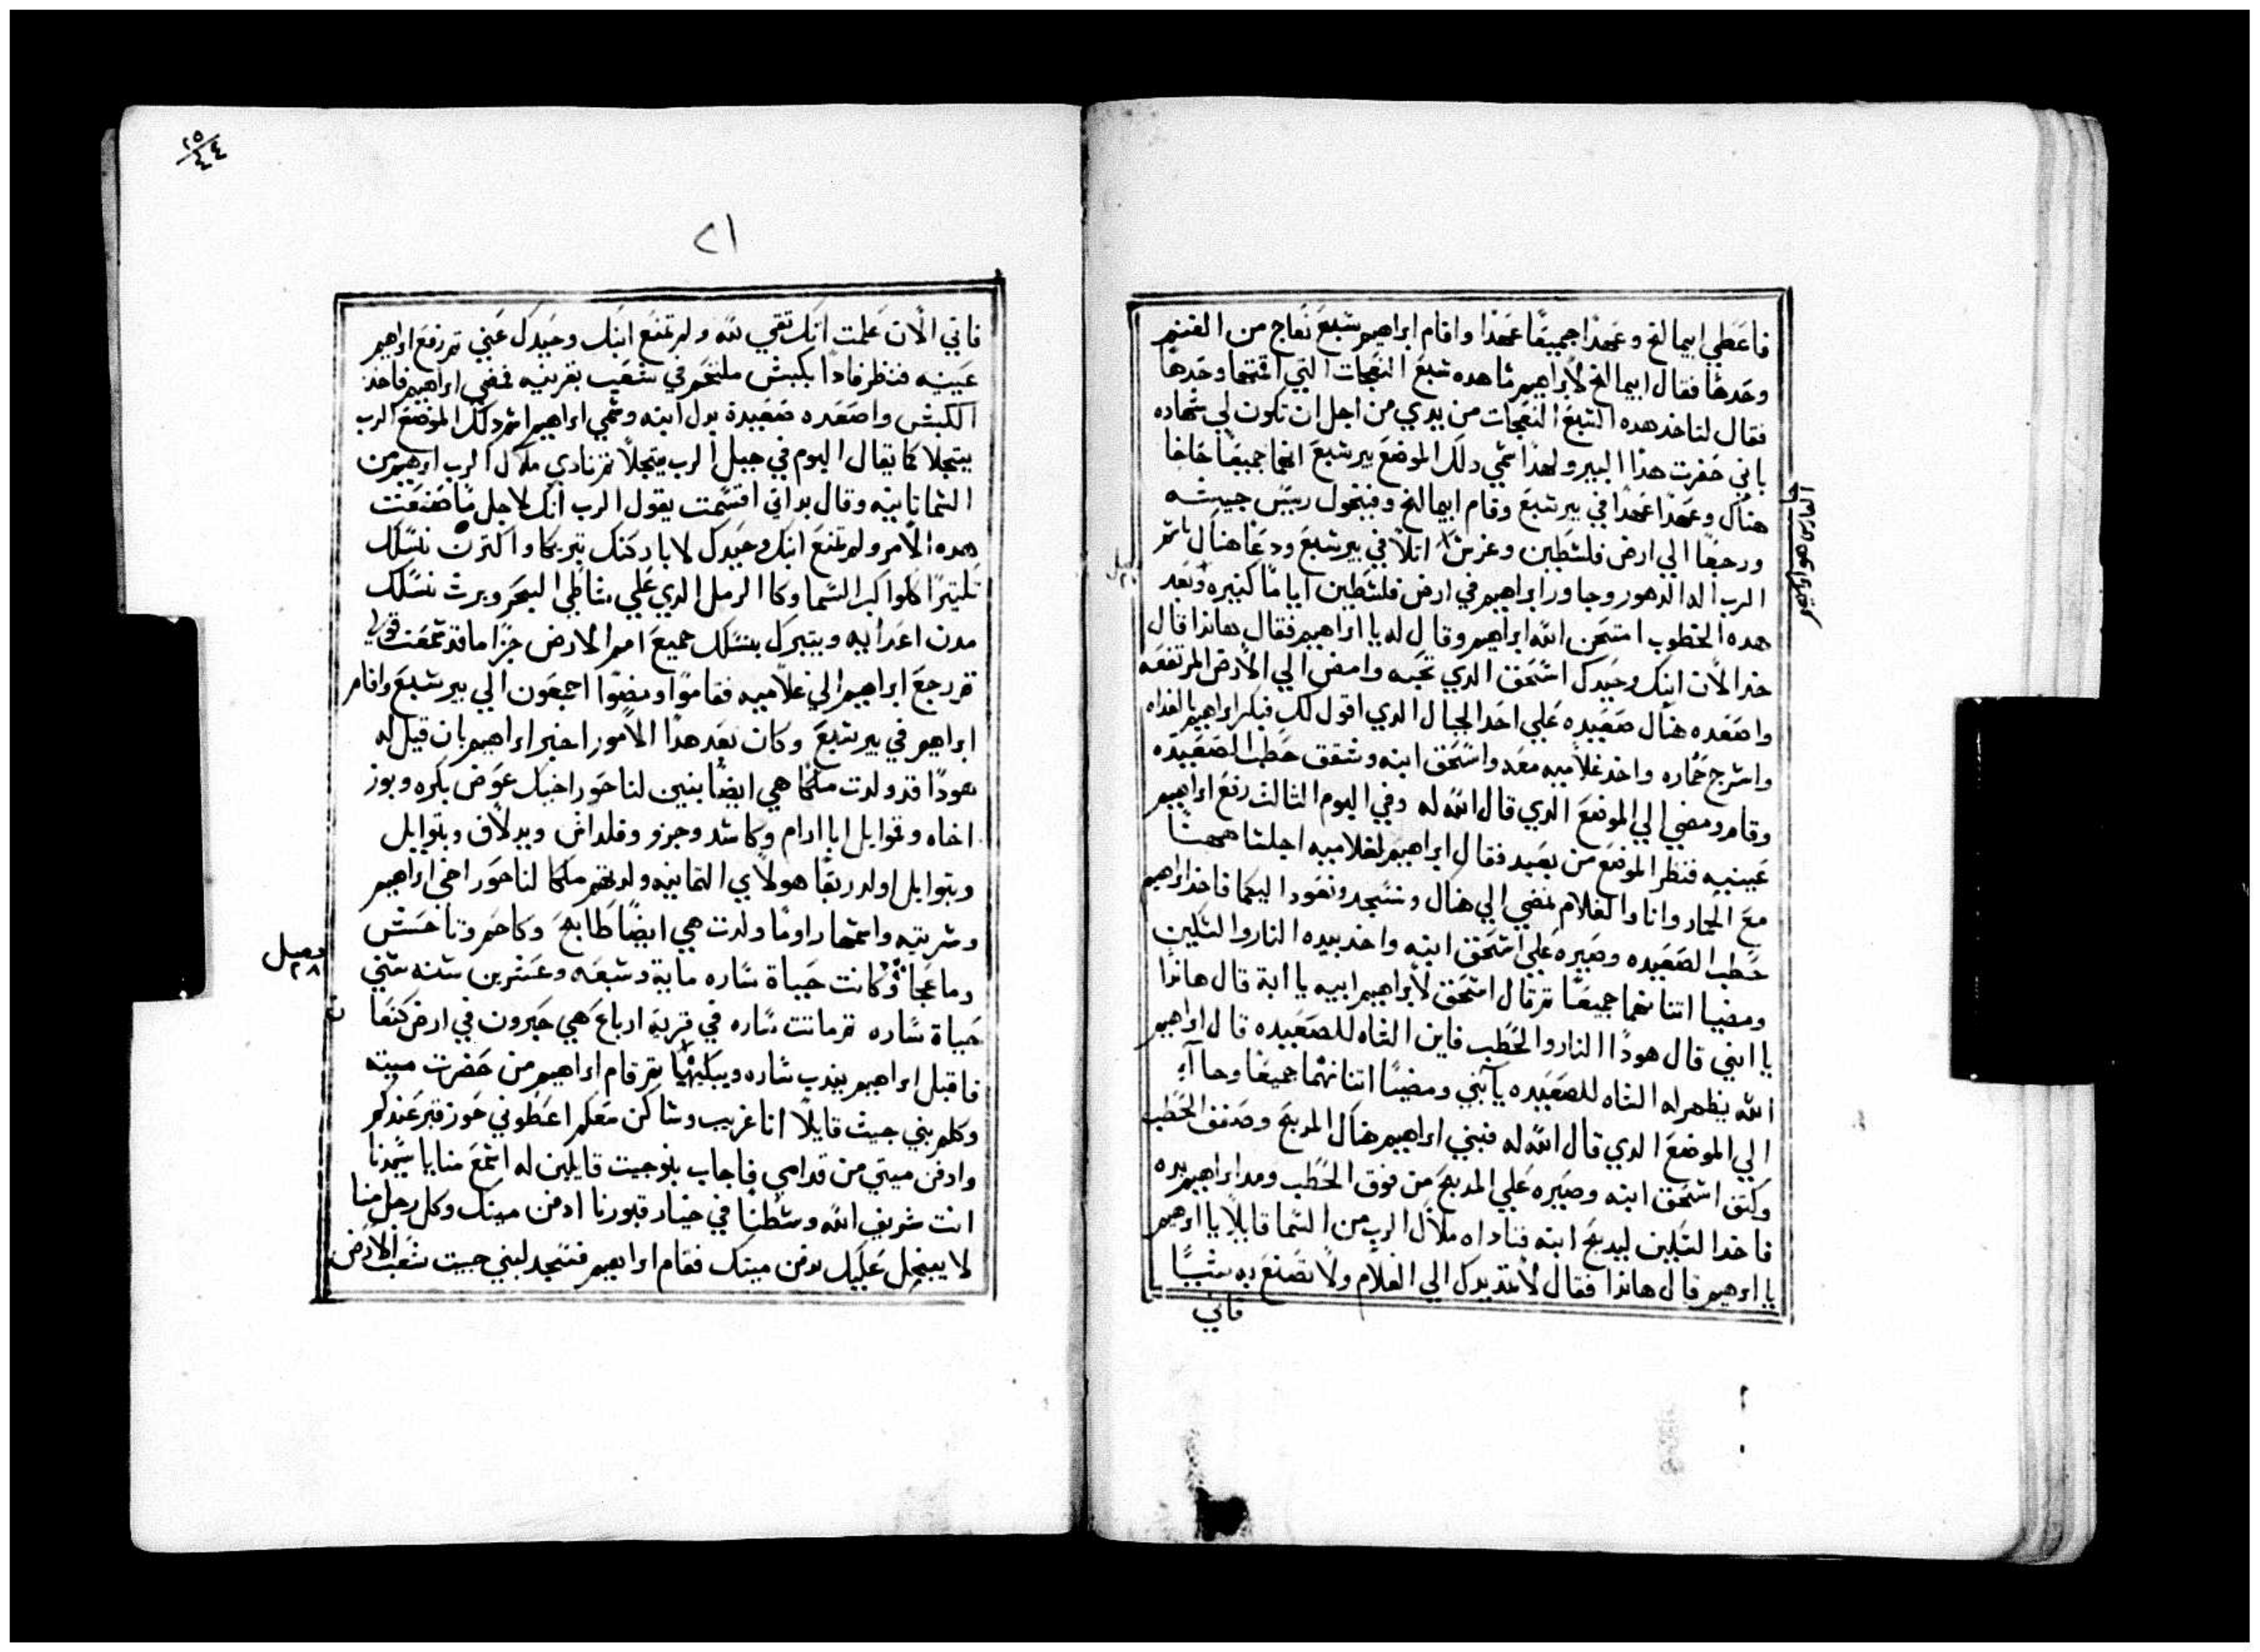 فاعطي ابيمالخ وعهدا جميعًا عهدًا واقام ابراهيم سبع نعاج من الغنم
وحدها فقال ابيمالخ لابراهيم ما هده سبع النعجات التي اقمتها وحدها
فقال لتاخد هده السبع النعجات من يدي من اجل ان تكون لي شهاده
باني حفرت هذا البير ولهذا سمي دلك الموضع بير سبع انهما جميعًا حلفا
هناك وعهدا عهدًا في بير سبع وقام ابيمالخ وفيخول رييس جيشه
ورجعا الي ارض فلسطين وغرس اتلاً في بير سبع ودعا هناك باسم
الرب اله الدهور وجاور ابراهيم في ارض فلسطين ايامًا كتيره وبعد
هده الخطوب امتحن الله ابراهيم وقال له يا ابراهيم فقال هاندا قال
خد الان ابنك وحيدك اسحق الدي تحبه وامض الي الارض المرتفعه
واصعده هناك صعيده علي احد الجبال الدي اقول لك فبكر ابراهيم بالغداه
واسرج حماره واخد غلاميه معه واسحق ابنه وشقق حطب الصعيده
وقام ومضي الي الموضع الدي قال الله له وفي اليوم الثالث رفع ابراهيم
عينيه فنظر الموضع من بعيد فقال ابراهيم لغلاميه اجلسا ههنا
مع الحمار وانا والغلام نمضي الي هناك ونسجد ونعود اليكما فاخد ابراهيم
حطب الصعيده وصيره علي اسحق ابنه واخد بيده النار والسكين
ومضيا اتنانهما جميعًا تم قال اسحق لابراهيم ابيه يا ابة قال هاندا
يا ابني قال هودا النار والحطب فاين الشاه للصعيده قال ابراهيم
الله يظهر له الشاه للصعيده يا بني ومضيا اتنانهما جميعًا وجاا
الي الموضع الدي قال الله له فبني ابراهيم هناك المدبح وصفف الحطب
وكتف اسحق ابنه وصيره علي المدبح من فوق الحطب ومد ابراهيم يده
فاخد السكين ليدبح ابنه فناداه ملاك الرب من السما قايلاً يا ابرهيم
يا ابرهيم قال هاندا فقال لا تمد يدك الي الغلام ولا تصنع به شيًا
فاني
٢٥
٤٤
٢١
فاني الان علمت انك تقي لله ولم تمنع ابنك وحيدك عني تم رفع ابراهيم
عينيه فنظر فادا بكبش ملتحم في شعيب بقرنيه فمضي ابراهيم فاخد
الكبش واصعده صعيدة بدل ابنه وسمي ابراهيم اسم دلك الموضع الرب
يتجلا كما يقال اليوم في جبل الرب يتجلا تم نادي ملاك الرب ابرهيم من
السما تانيه وقال بداتي اقسمت يقول الرب انك لاجل ما صنعت
هده الامر ولم تمنع ابنك وحيدك لاباركنك تبريكا واكترن نسلك
تكتيرًا كلواكب السما وكالرمل الدي علي شاطي البحر ويرث نسلك
مدن اعدايه ويتبرك بنسلك جميع امم الارض جزا ما قد سمعت قولي
تم رجع ابراهيم الي غلاميه فقاموا ومضوا اجمعون الي بير سبع واقام
ابراهيم في بير سبع وكان بعد هدا الامور اخبر ابراهيم بان قيل له
هودا قد ولدت ملكا هي ايضًا بنين لناحور اخيك عوض بكره وبوز
اخاه وقموايل ابا ارام وكاسد وحزو وفلداش ويدلاف وبتوايل
وبتوايل اولد ربقا هولاي التمانيه ولدتهم ملكا لناحور اخي ابراهيم
وسريته واسمها راوما ولدت هي ايضًا طابح وكاحم وتاحش
وماعجا وكانت حياة ساره ماية وسبعه وعشرين سنه سني
فصل
٢٨
حياة ساره تم ماتت ساره في قرية ارباع هي حبرون في ارض كنعا
ن
فاقبل ابراهيم يندب ساره ويبكيها تم قام ابراهيم من حضرت ميته
وكلم بني حيت قايلاً انا غريب وساكن معكم اعطوني حوز قبر عندكم
وادفن ميتي من قدامي فاجاب بنو حيت قايلين له اسمع منا يا سيدنا
انت شريف الله وسطنا في خيار قبورنا ادفن ميتك وكل رجل منا
لا يبخل عليك بدفن ميتك فقام ابراهيم فسجد لبني حيت شعب الارض